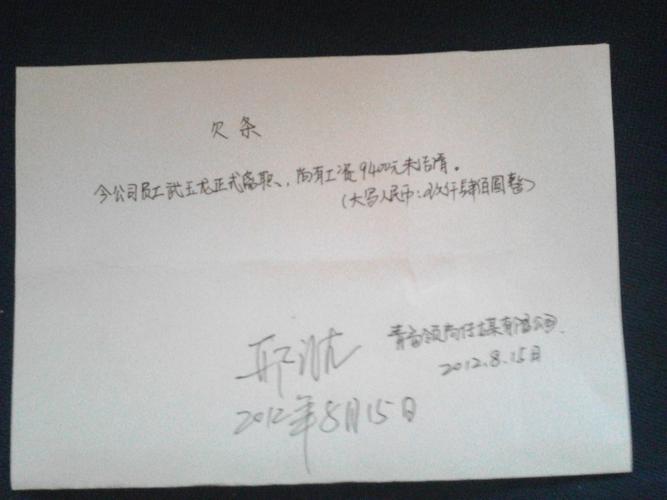 欠条
今公司员工武玉龙正式离职、尚有工资9400元未结清。
(大写人民币:玖仟肆佰圆整)
青岛领尚传媒有限公司.
2012.8.15日
2012年8月15日